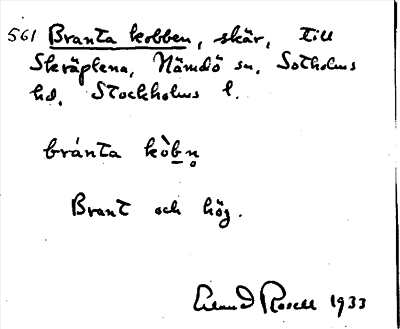 561 Branta kobben, skär, till
Skräplena, Nämdö sn, Sotholms
hd, Stockholms l.
bránta kòbn̥
Brant och hög.
Erland Rosell 1933